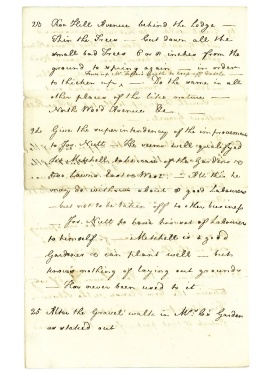 23 Rox Hill Avenue behind the lodge —
Thin the Trees — cut down all the
small bad Trees 6 or 8 inches from the
ground to spring again — in order
to thicken up — Do the same in all
other places of the like nature —
North Wood Avenue &c —
24 Give the superintendency of the improvement
to Jos. Niell He seems well qualified
for Mitchell, to be over all the Gardens &
two Lawns East & West — All this he
may do with about 8 good Labourers
— but not to be taken off to other business
Jos. Niell to have his set of Labourer
to himself — Mitchell is a good
Gardener & can plant well — but
knows nothing of laying out grounds
Has never been used to it
25 Alter the Gravel walk in Mrs. Garden
as staked out